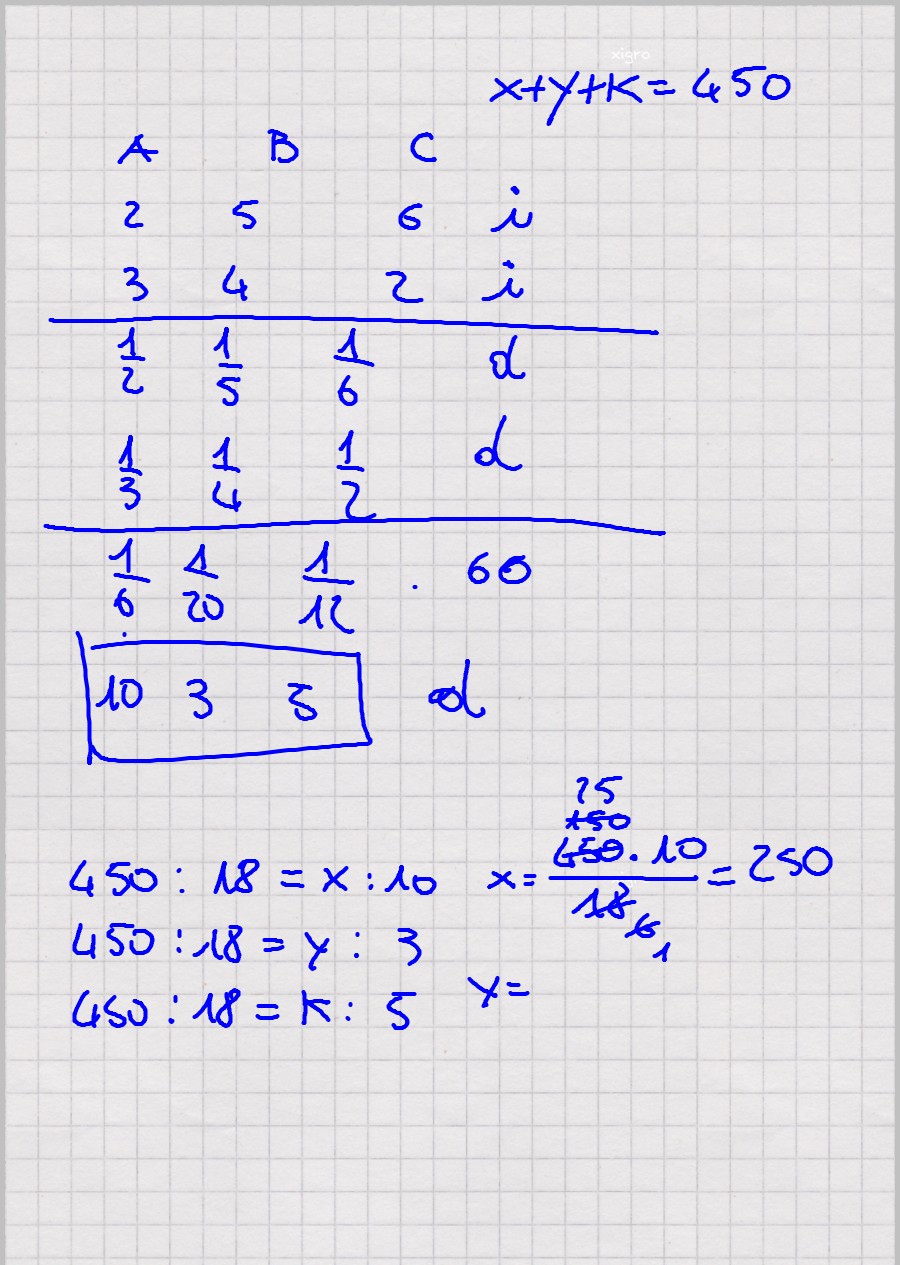 xigro
x+y+K=450
A B C
2 5 6 i
3 4 2 i
1/2 1/5 1/6 d
1/3 1/4 1/2 d
1/6 1/20 1/12 . 60
10 3 5 d
25
150
450 : 18 = x : 10 x = 450 . 10 / 18 = 250
6
1
450 : 18 = y : 3
y =
450 : 18 = K : 5